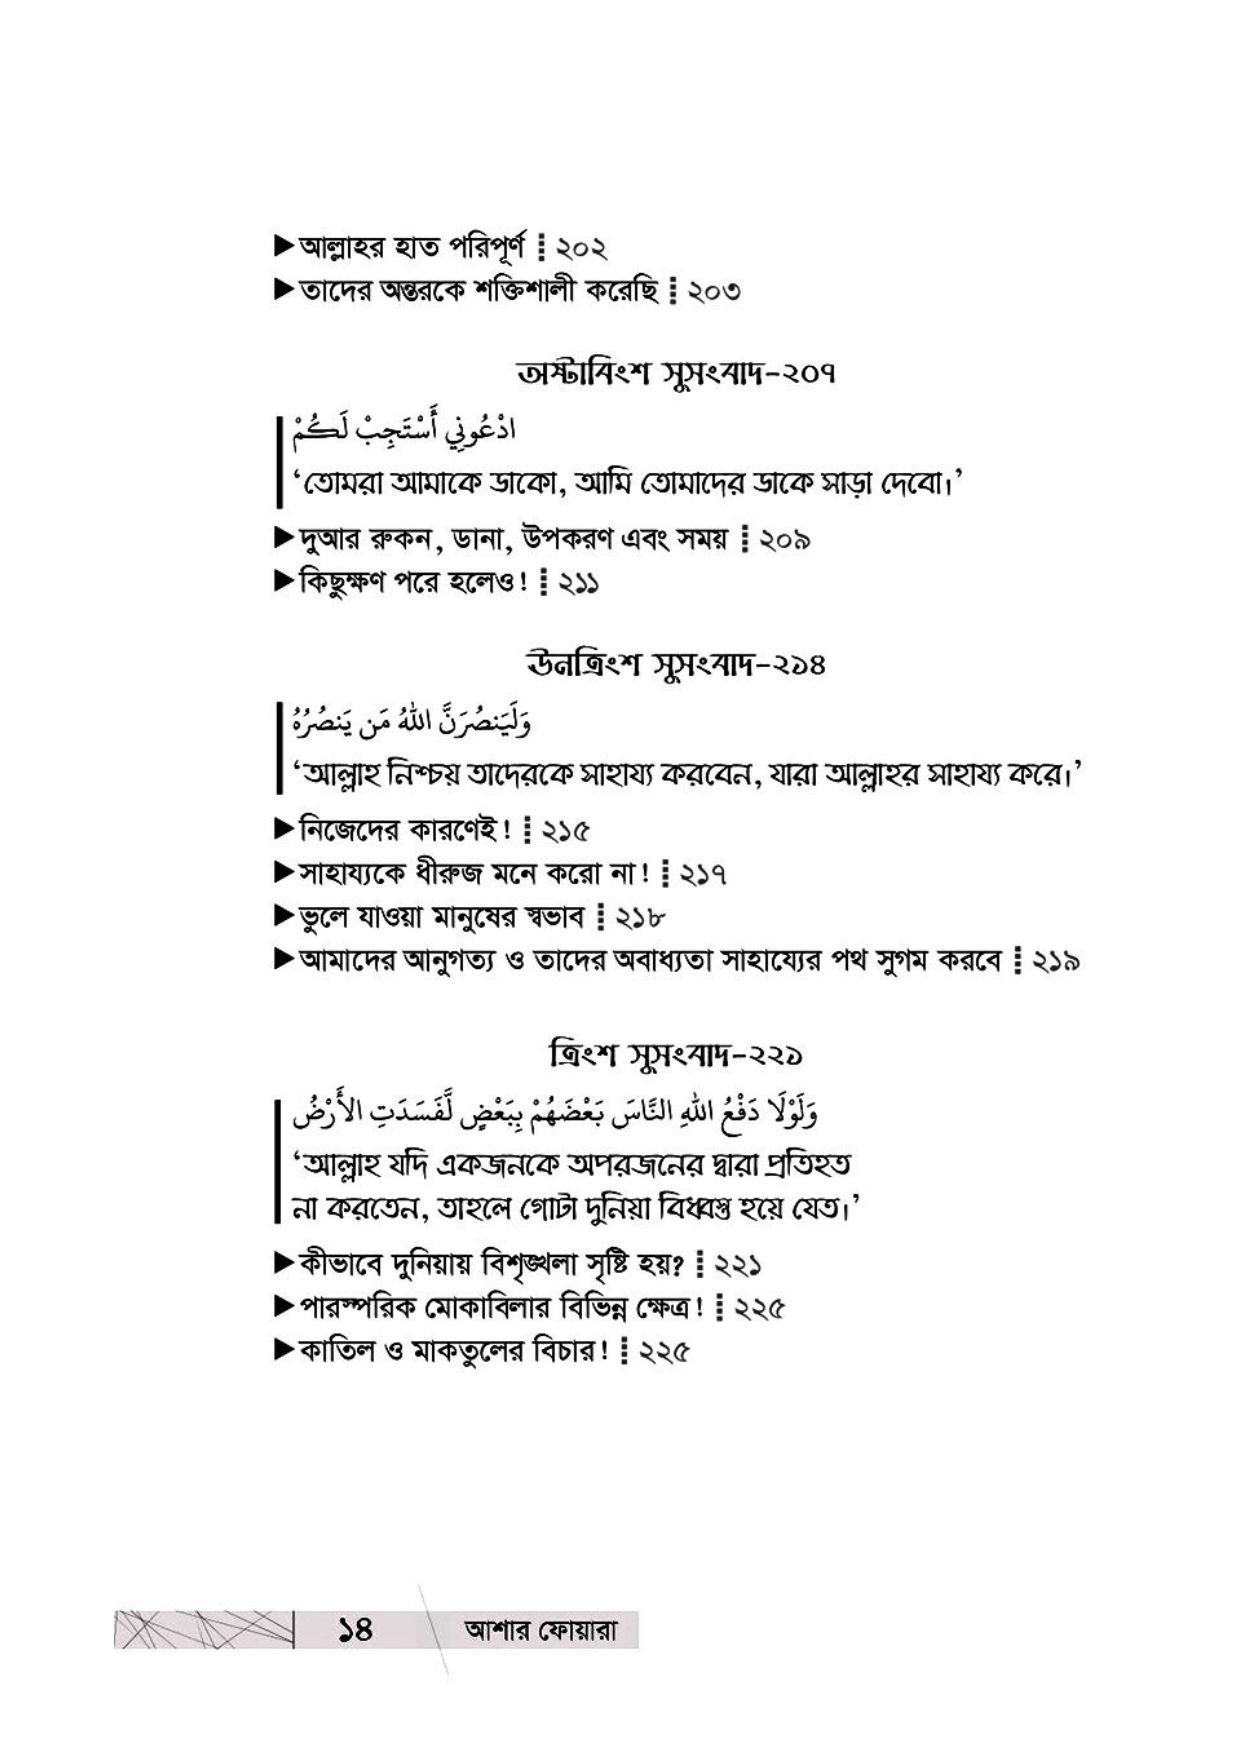 ▶আল্লাহর হাত পরিপূর্ণ ⁞ ২০২
▶তাদের অন্তরকে শক্তিশালী করেছি ⁞ ২০৩
অষ্টাবিংশ সুসংবাদ-২০৭
ادْعُونِي أَسْتَجِبْ لَكُمْ
‘তোমরা আমাকে ডাকো, আমি তোমাদের ডাকে সাড়া দেবো।’
▶দুআর রুকন, ডানা, উপকরণ এবং সময় ⁞ ২০৯
▶কিছুক্ষণ পরে হলেও! ⁞ ২১১
ঊনত্রিংশ সুসংবাদ-২১৪
وَلَيَنصُرَنَّ اللهُ مَن يَنصُرُهُ
‘আল্লাহ নিশ্চয় তাদেরকে সাহায্য করবেন, যারা আল্লাহর সাহায্য করে।’
▶নিজেদের কারণেই! ⁞ ২১৫
▶সাহায্যকে ধীরুজ মনে করো না! ⁞ ২১৭
▶ভুলে যাওয়া মানুষের স্বভাব ⁞ ২১৮
▶আমাদের আনুগত্য ও তাদের অবাধ্যতা সাহায্যের পথ সুগম করবে ⁞ ২১৯
ত্রিংশ সুসংবাদ-২২১
وَلَوْلَا دَفْعُ اللهِ النَّاسَ بَعْضَهُمْ بِبَعْضٍ لَّفَسَدَتِ الأَرْضُ
‘আল্লাহ যদি একজনকে অপরজনের দ্বারা প্রতিহত
না করতেন, তাহলে গোটা দুনিয়া বিধ্বস্ত হয়ে যেত।’
▶কীভাবে দুনিয়ায় বিশৃঙ্খলা সৃষ্টি হয়? ⁞ ২২১
▶পারস্পরিক মোকাবিলার বিভিন্ন ক্ষেত্র! ⁞ ২২৫
▶কাতিল ও মাকতুলের বিচার! ⁞ ২২৫
১৪ আশার ফোয়ারা